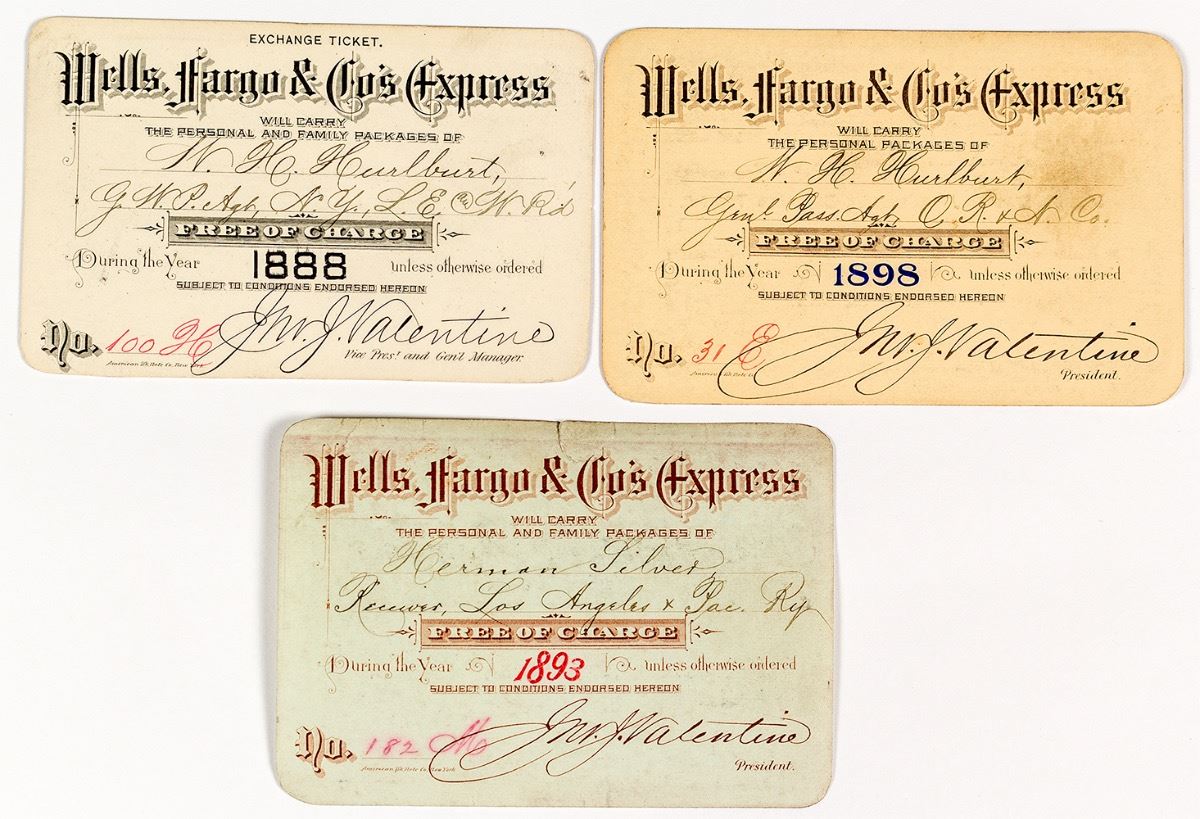 EXCHANGE TICKET.
Wells, Fargo & Co's Express
WILL CARRY
THE PERSONAL AND FAMILY PACKAGES OF
W. H. Hurlburt,
G. W. P. Agt, N. Y., L. E. & W. R'd
FREE OF CHARGE
During the Year 1888 unless otherwise ordered
SUBJECT TO CONDITIONS ENDORSED HEREON
No. 100 H Jno. J. Valentine
American Bk. Note Co. New York Vice Pres! and Gen'l Manager.
Wells, Fargo & Co's Express
WILL CARRY
THE PERSONAL PACKAGES OF
W. H. Hurlburt,
Genl Pass. Agt, O. R. & N. Co.
FREE OF CHARGE
During the Year 1898 unless otherwise ordered
SUBJECT TO CONDITIONS ENDORSED HEREON
No. 31 E Jno. J. Valentine
American Bk. Note Co President.
Wells, Fargo & Co's Express
WILL CARRY
THE PERSONAL AND FAMILY PACKAGES OF
Herman Silver,
Receiver, Los Angeles & Pac. Ry
FREE OF CHARGE
During the Year 1893 unless otherwise ordered
SUBJECT TO CONDITIONS ENDORSED HEREON
No. 182 M Jno. J. Valentine
American Bk. Note Co. New York President.